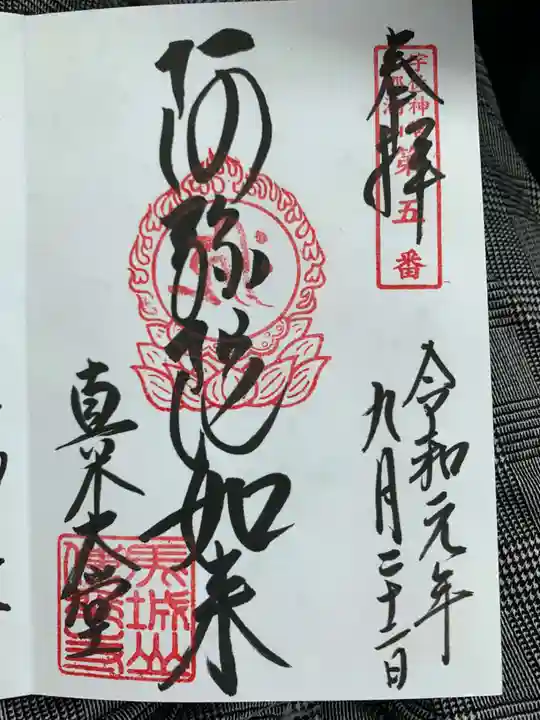 奉拝
第五番
令和元年
九月二十二日
阿弥陀如来
直米大堂